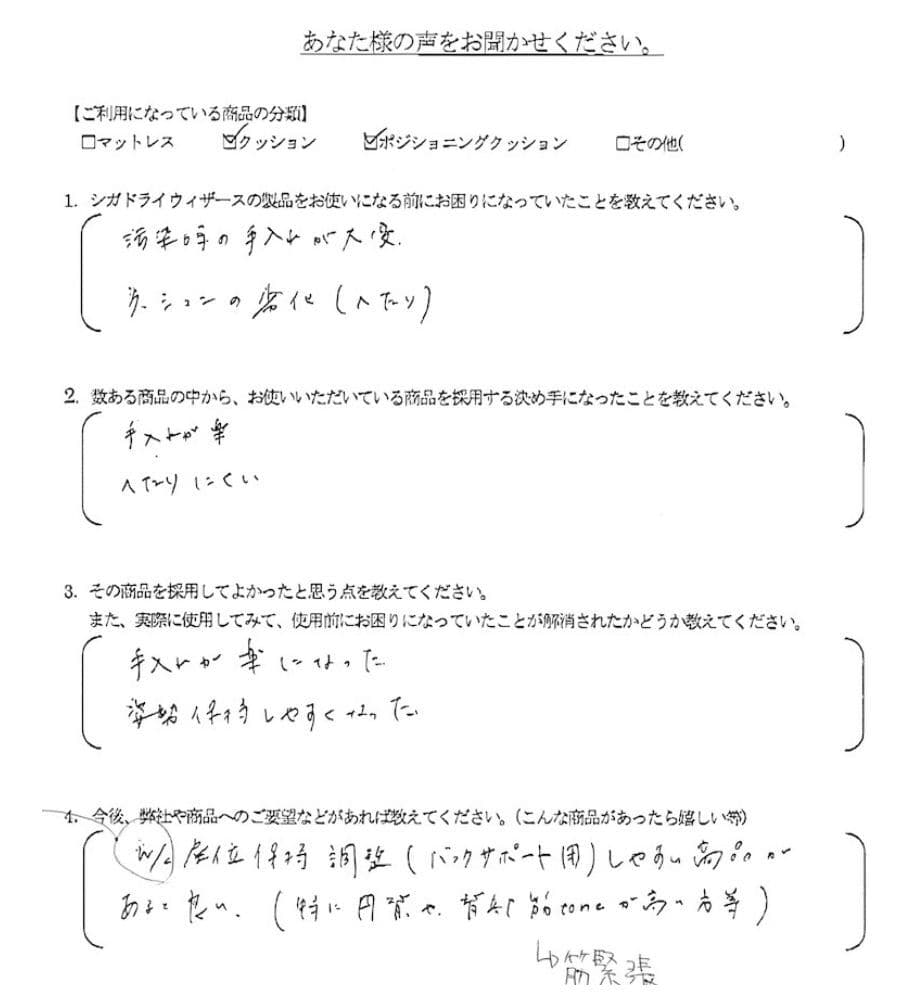 あなた様の声をお聞かせください。
【ご利用になっている商品の分類】
□マットレス ☑クッション ☑ポジショニングクッション □その他( )
1. シガドライウィザースの製品をお使いになる前にお困りになっていたことを教えてください。
汚染時の手入れが大変.
クッションの劣化(へたり)
2. 数ある商品の中から、お使いいただいている商品を採用する決め手になったことを教えてください。
手入れが楽
へたりにくい
3. その商品を採用してよかったと思う点を教えてください。
また、実際に使用してみて、使用前にお困りになっていたことが解消されたかどうか教えてください。
手入れが楽になった
姿勢保持しやすくなった
4. 今後、弊社や商品へのご要望などがあれば教えてください。(こんな商品があったら嬉しい等)
w/c 座位保持調整(バックサポート用)しやすい商品が
あると良い.(特に円背や、背部筋toneが高い方等)
↳筋緊張